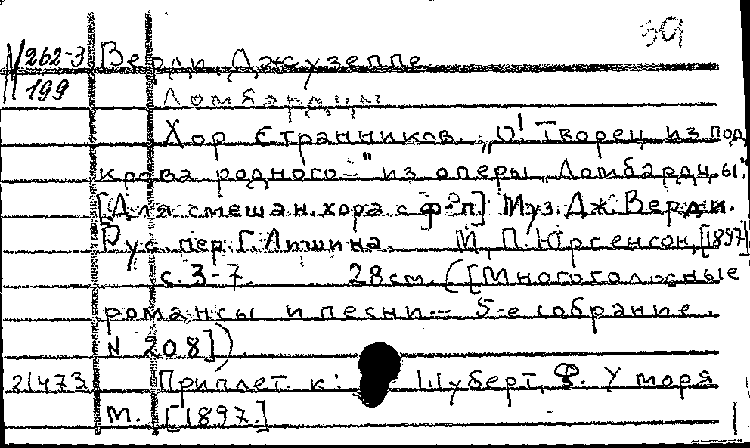 39
N 262-3 Верди, Джузеппе
199
Ломбардцы
Хор странников. „О! Творец из под
крова родного –" из оперы „Ломбардцы."
[Для смешан. хора с ф-п] Муз. Дж. Верди.
Рус. пер. Г. Лишина. М., П. Юргенсон, [1897]
с. 3-7. 28 см. ([Многоголосные
романсы и песни – 5-е собрание.
N 208]).
21473 Приплет. к: Шуберт, Ф. У моря
М. [1897.]